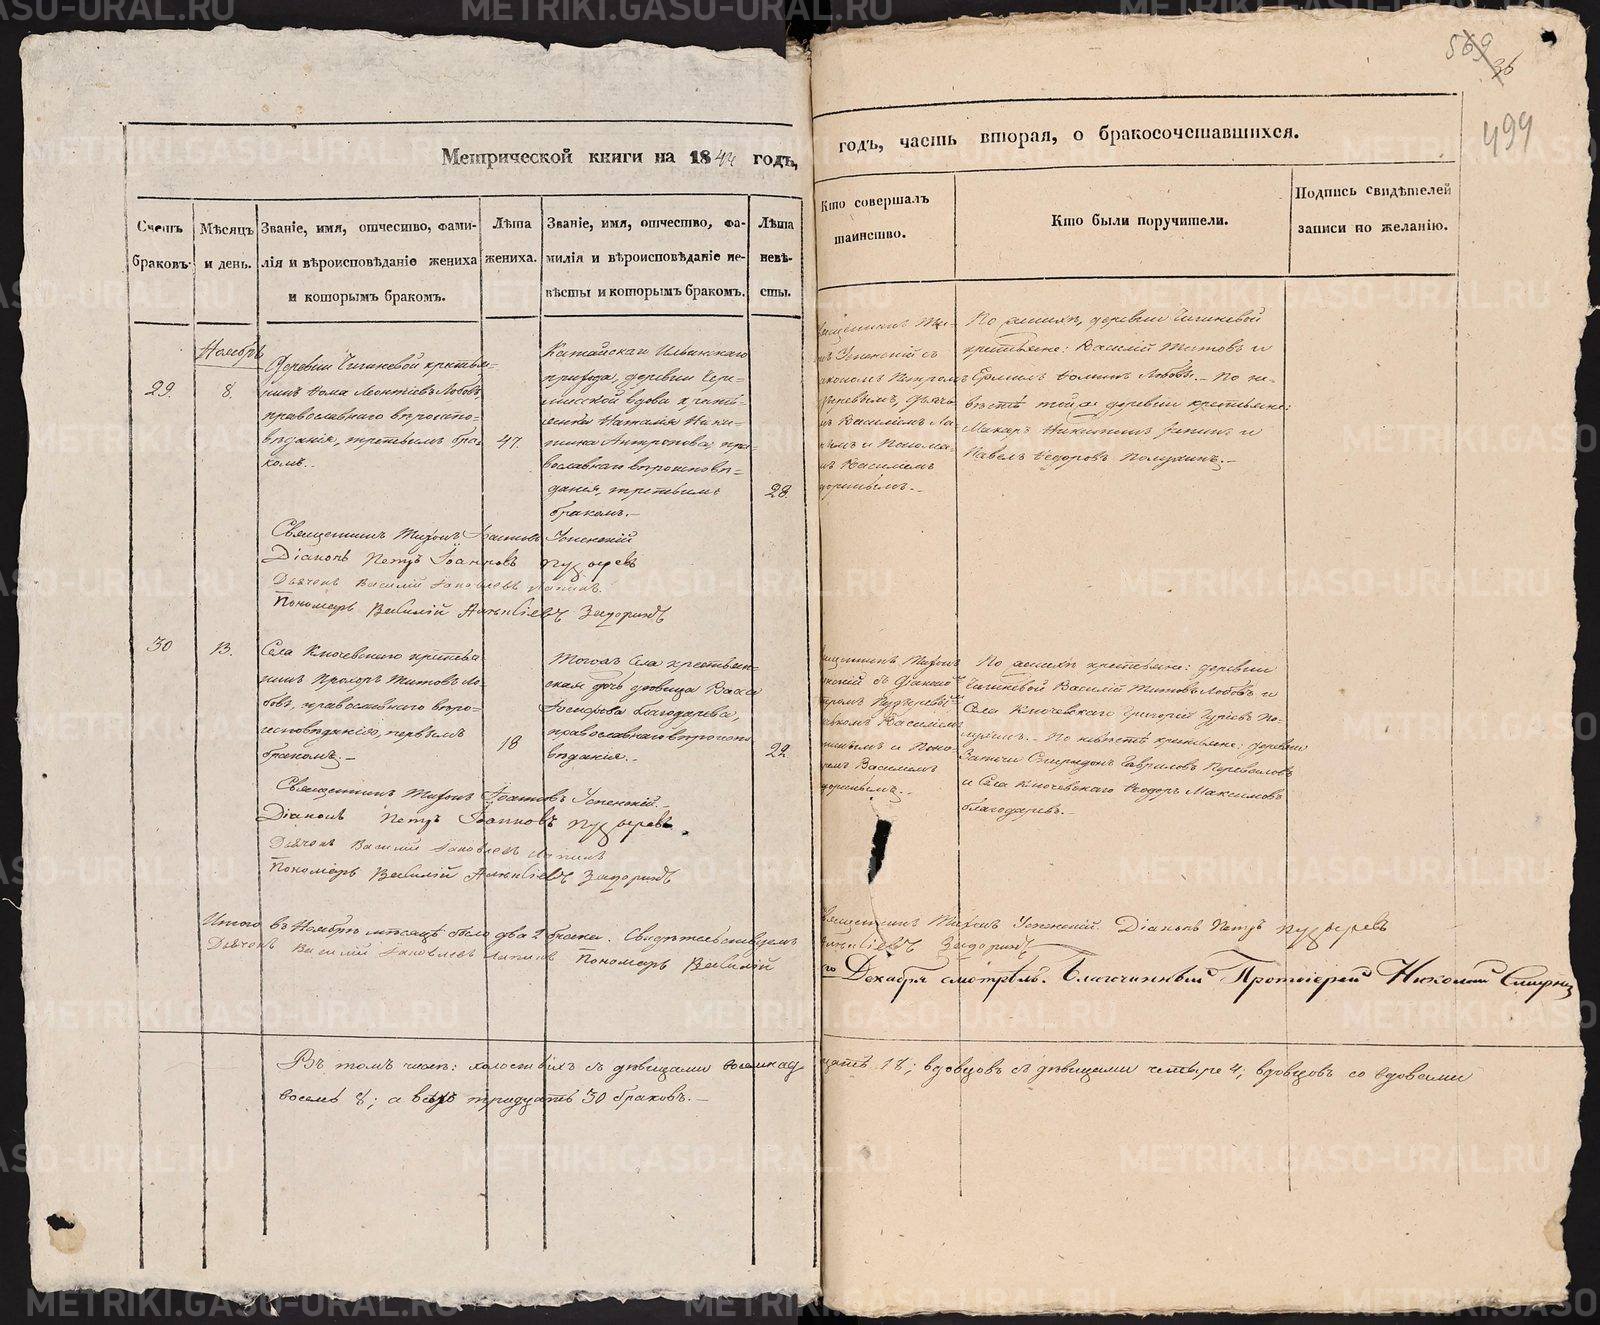 569
36
499
Метрической книги на 1844 годъ,
годъ, часть вторая, о бракосочетавшихся.
Счетъ браковъ.
Мѣсяцъ и день.
Званіе, имя, отчество, фами-
лія и вѣроисповѣданіе жениха
и которымъ бракомъ.
Лѣта
жениха.
Званіе, имя, отчество, фа-
милія и вѣроисповѣданіе не-
вѣсты и которымъ бракомъ.
Лѣта
невѣ-
сты.
Кто совершалъ
таинство.
Кто были поручители.
Подпись свидѣтелей
записи по желанію.
Ноябрь
29.
8.
Деревни Чигиневой крестья-
нинъ Ѳома Леонтіевъ Лобовъ
православнаго вѣроиспо-
вѣданія, третьимъ бра-
комъ.
47.
Катайскаго Ильинскаго
прихода, деревни Чере-
мисской вдова крестья-
Наталія Ники-
тина Антропова, пра-
вославнаго вѣроисповѣ-
данія, третьимъ
бракомъ.
28.
Успенскій съ
Діакономъ Петромъ
Дьяч-
Василіемъ Ла-
и Понома-
Василіемъ
По женихѣ, деревни Чигиневой
крестьяне: Василій Титовъ и
Ермилъ Ѳоминъ Лобовъ. По не-
вѣстѣ той же деревни крестьяне:
Макаръ Никитинъ и
Павелъ Ѳедоровъ
Священникъ Тихонъ Іоанновъ Успенскій
Діаконъ Петръ Іоанновъ Пузыревъ
Дьячекъ Василій Іаковлевъ Лапинъ
Пономарь Василій Задоринъ
30
13.
Села Ключевскаго крестья-
нинъ Прохоръ Титовъ Ло-
бовъ, православнаго вѣро-
исповѣданія, первымъ
бракомъ.
18
Тогожъ Села крестьян-
ская дочь дѣвица Васса
Благодарева,
православнаго вѣроиспо-
вѣданія.
22
Священникъ Тихонъ
Успенскій съ Діакономъ
Петромъ Пузыревымъ
Василіемъ
и Поно-
Василіемъ
По женихѣ крестьяне: деревни
Чигиневой Василій Титовъ Лобовъ и
Села Ключевскаго Григорій
По невѣстѣ крестьяне: деревни
Спиридонъ Гавриловъ Переваловъ
и Села Ключевскаго Ѳеодоръ Максимовъ
Благодаревъ.
Священникъ Тихонъ Іоанновъ Успенскій.
Діаконъ Петръ Іоанновъ Пузыревъ.
Дьячекъ Василій Іаковлевъ Лапинъ
Пономарь Василій Задоринъ
Итого въ Ноябрѣ мѣсяцѣ было два 2 брака. Свидѣтельствуемъ
Священникъ Тихонъ Успенскій. Діаконъ Петръ Пузыревъ
Дьячекъ Василій Іаковлевъ Лапинъ Пономарь Василій
Задоринъ
Декабря смотрѣлъ. Благочинный Протоіерей Николай
Въ томъ числѣ: холостыхъ съ дѣвицами восемнад-
цать 18; вдовцовъ съ дѣвицами четыре 4, вдовцовъ со вдовами
восемь 8; а всего тридцать 30 браковъ.
METRIKI.GASO-URAL.RU